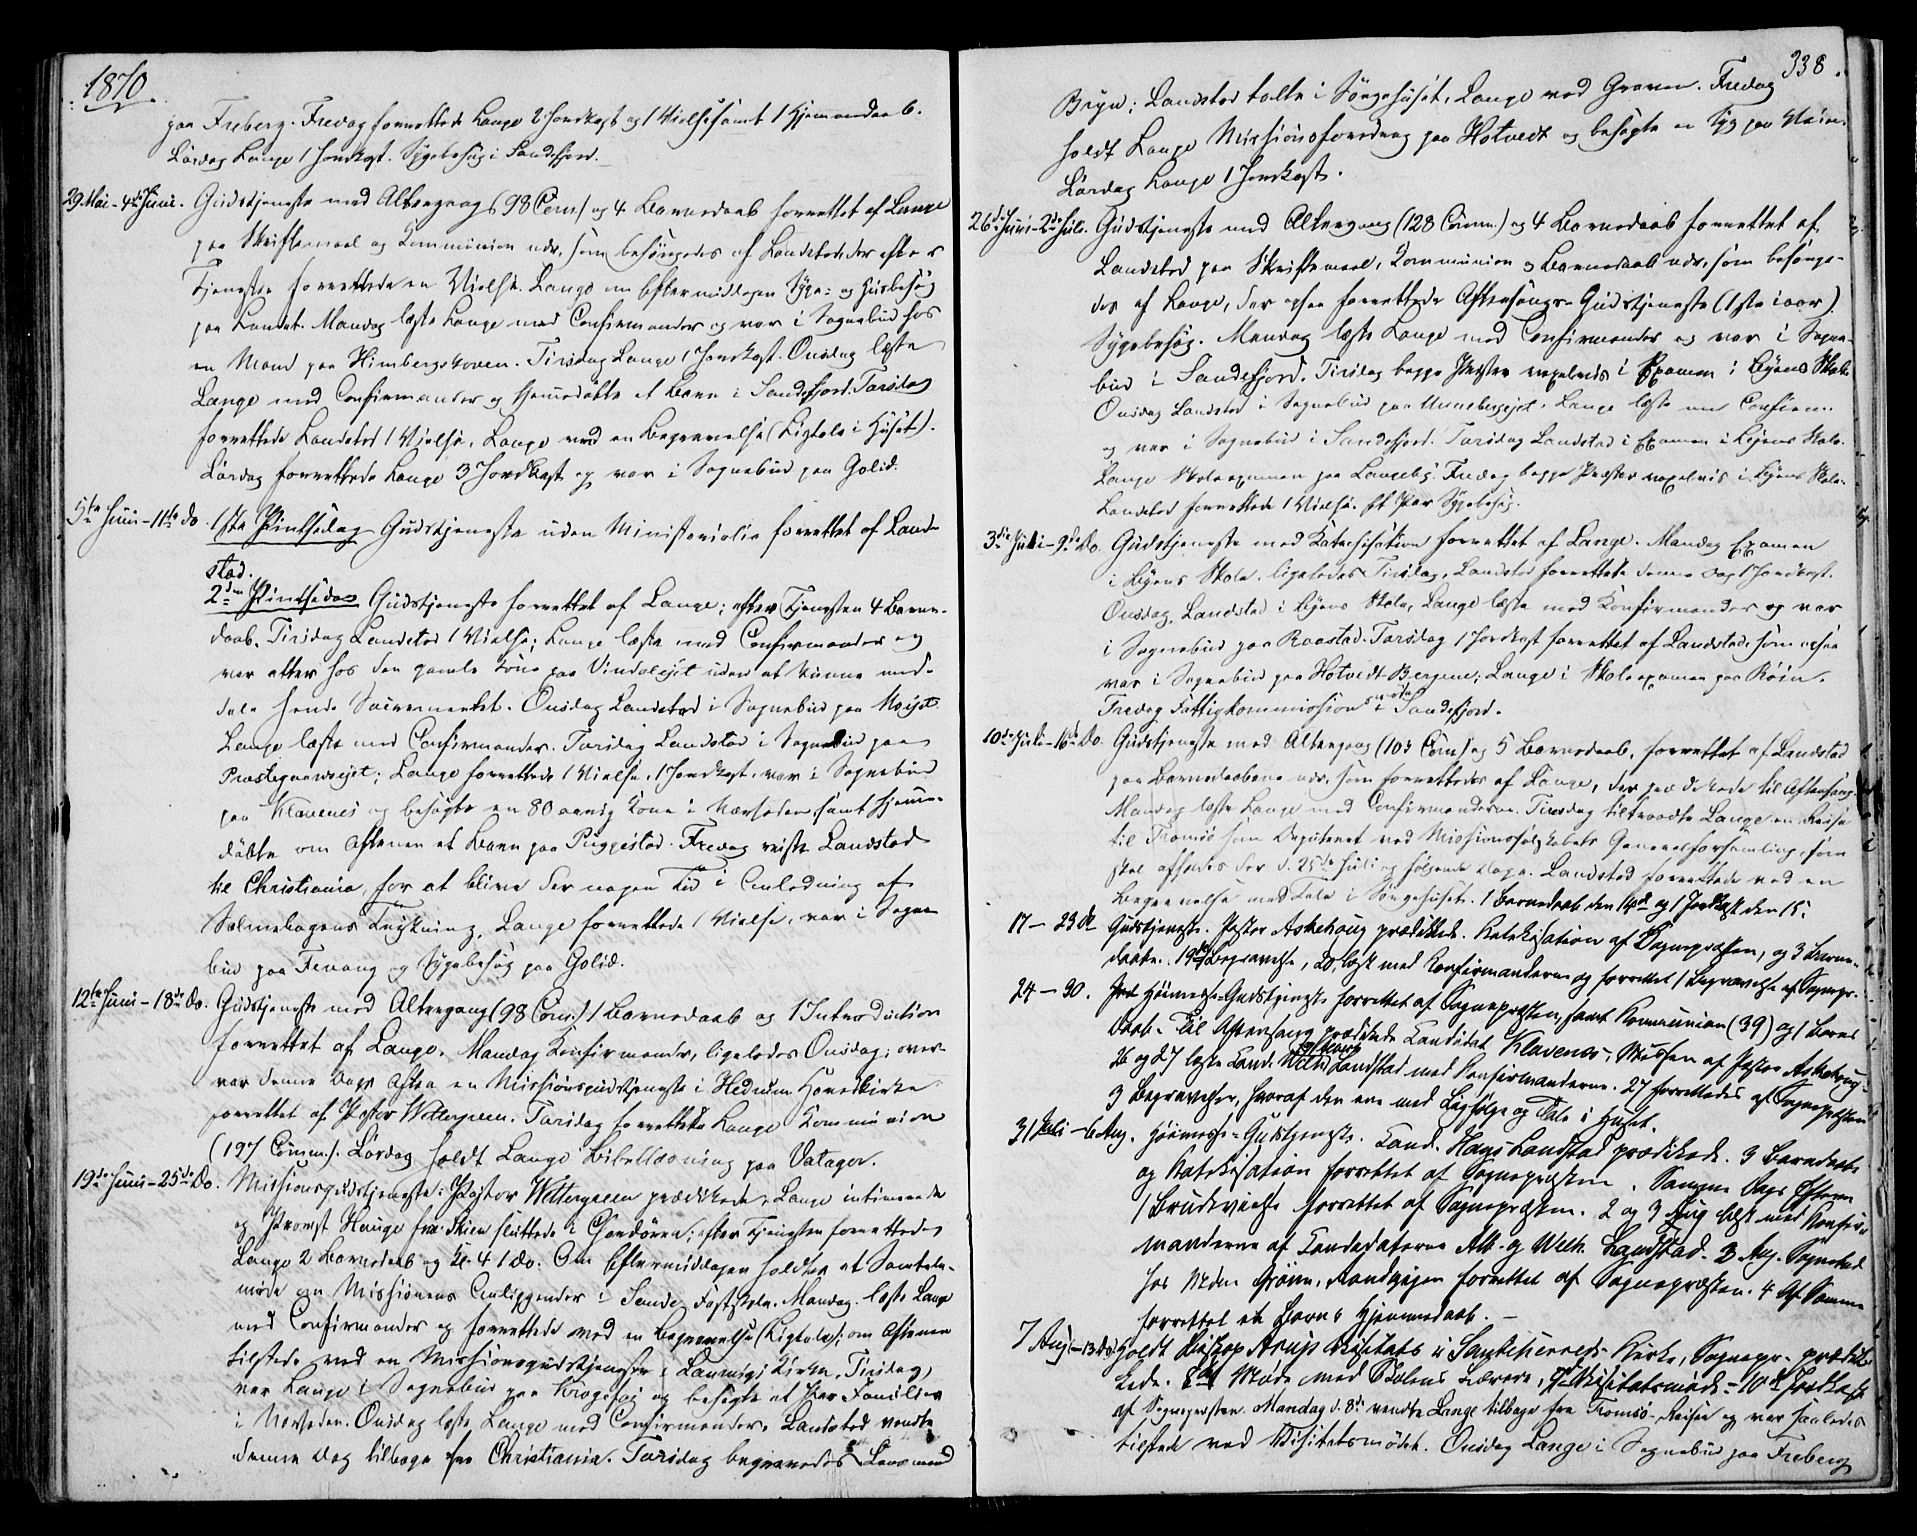 1870.
paa Freberg. Fredag forrettede Lange 2 Jordkast og 1 Vielse samt 1 Hjemmedaab.
Lördag Lange 1 Jordkast. Sygebesög i Sandefjord.
29 Mai - 4de Juni. Gudstjeneste med Altergang (98 Com.) og 4 Barnedaab forrettet af Lange
paa Skriftemaal og Kommunion nær, som besörgedes af Landstad, der efter
Tjenesten forrettede en Vielse. Lange om Eftermiddagen Syge- og Husbesög
paa Landet. Mandag læste Lange med Confirmander og var i Sognebud hos
en Mand paa Himbergskoven. Tirsdag Lange 1 Jordkast. Onsdag læste
Lange med Confirmander og hjemmedöbte et Barn i Sandefjord. Torsdag
forrettede Landstad 1 Vielse, Lange ved en Begravelse (Ligtale i Huset).
Lördag forrettede Lange 3 Jordkast og var i Sognebud paa Golid.
5te Juni - 11te do. 1ste Pintsedag Gudstjeneste uden Ministerialia forrettet af Land-
stad.
2den Pintsedag Gudstjeneste forrettet af Lange; efter Tjenesten 4 Barne-
daab. Tirsdag Landstad 1 Vielse; Lange læste med Confirmander og
var atter hos den gamle Kone paa Vindalsejet uden at kunne med-
dele hende Sacramentet. Onsdag Landstad i Sognebud paa
Lange læste med Confirmander. Torsdag Landstad i Sognebud paa
Præstegaardsejet; Lange forrettede 1 Vielse, 1 Jordkast, var i Sognebud
paa Klavenes og besögte en 80 aarig Kone i Nærheden, samt hjemme-
döbte om Aftenen et Barn paa Puggestad. Fredag reiste Landstad
til Christiania, for at blive der nogen Tid i Anledning af
Salmebogens Trykning. Lange forrettede 1 Vielse, var i Sogne-
bud paa Fevang og Sygebesög paa Golid.
12te Juni - 18de do. Gudstjeneste med Altergang (98 Com.) 1 Barnedaab og 1 Introduction
forrettet af Lange. Mandag Konfirmander, ligeledes Onsdag; over-
var denne Dags Aften en Missionsgudstjeneste i Hedrum Hovedkirke
forrettet af Pastor Wettergreen. Torsdag forrettede Lange Kommunion
(197 Comm.). Lördag holdt Lange Bibellæsning paa Vatager.
19de Juni - 25de Do. Missionsgudstjeneste: Pastor Wettergreen prædikede, Lange intimerede
og Provst Hauge fra Skien sluttede i Chordören; efter Tjenesten forrettede
Lange 2 Barnedaab og Kl. 4 1 do. Om Eftermiddagen holdtes et Samtale-
möde om Missionens Anliggender i Sande Fastskole. Mandag læste Lange
med Confirmander og forrettede ved en Begravelse (Ligtale); om Aftenen
tilstede ved en Missionsgudstjeneste i Laurvigs Kirke. Tirsdag
var Lange i Sognebud paa Krogejöj og besögte et Par Familier
i Nærheden. Onsdag læste Lange med Confirmander. Landstad vendte
denne Dag tilbage fra Christiania. Torsdag begravedes
338.
Bryn; Landstad talte i Sörgehuset, Lange ved Graven. Fredag
holdt Lange Missionsforedrag paa Hotvedt og besögte en Syg paa
Lördag Lange 1 Jordkast.
26de Juni - 2de Juli. Gudstjeneste med Altergang (128 Comm.) og 4 Barnedaab forrettet af
Landstad paa Skriftemaal, Kommunion og Barnedaab nær, som besörge-
des af Lange, der ogsaa forrettede Aftensangs-Gudstjeneste (1ste i aar)
Sygebesög. Mandag læste Lange med Confirmander og var i Sogne-
bud i Sandefjord. Tirsdag begge Præster vexelvis i Examen i Byens Skole.
Onsdag Landstad i Sognebud paa Unnebergejet. Lange læste m Confirm.
og var i Sognebud i Sandefjord. Torsdag Landstad i Examen i Byens Skole.
Lange Skoleexamen paa Langeby. Fredag begge Præster vexelvis i Byens Skole.
Landstad forrettede 1 Vielse. Et Par Sygebesög.
3die Juli - 9de Do. Gudstjeneste med Katechisation forrettet af Lange. Mandag Examen
i Byens Skole, ligeledes Tirsdag, Landstad forrettede denne Dag 1 Jordkast.
Onsdag, Landstad i Byens Skole, Lange læste med Konfirmander og var
i Sognebud paa Raastad. Torsdag 1 Jordkast forrettet af Landstad, som ogsaa
var i Sognebud paa Hotvedt Bergene; Lange i Skoleexamen paa Röin.
Fredag Fattigkommissionsmöde i Sandefjord.
10de Juli - 16de Do. Gudstjeneste med Altergang (103 Com.) og 5 Barnedaab, forrettet af Landstad
paa Barnedaabene nær, som forrettedes af Lange, der prædikede til Aftensang.
Mandag læste Lange med Confirmanderne. Tirsdag tiltraadte Lange en Reise
til Tromsö som Deputeret ved Missionsselskabets Generalforsamling, som
skal afholdes der d. 25de Juli og fölgende Dage. Landstad forrettede ved en
Begravelse med Tale i Sörgehuset. 1 Barnedaab den 14de og 1 Jordkast den 15.
17 - 23 d. Gudstjeneste. Pastor Askehoug prædikede. Katekisation af Sognepræsten, og 3 Barne-
daabe. 19de Begravelse, 20, læst med Konfirmanderne og forrettet 1 Begravelse af Sognepr.
24 - 30. Höimesse-Gudstjeneste forrettet af Sognepræsten, samt Kommunion (39) og 1 Barne
daab. Til Aftensang prædikede Kandidat Klavenes, Messen af Pastor Askehoug.
26 og 27 læste Cand. Wilh. Landstad med Konfirmanderne. 27 forrettedes af Sognepræsten
3 Begravelser, hvoraf den ene med Ligfölge og Tale i Huset.
31 Juli - 6 Aug. Höimesse-Gudstjeneste. Cand. Hans Landstad prædikede. 3 Barnedaabe
og Katekisation forrettet af Sognepræsten. Samme Dags Aften
1 Brudevielse forrettet af Sognepræsten. 2 og 3 Aug læst med Konfir-
manderne af Kandidaterne Alk. og Wilh. Landstad. 3 Aug. Sognebud
hos Mdm Grönn, Sandefjord forrettet af Sognepræsten. 4 af Samme
forrettet et Barns Hjemmedaab. -
7 Aug - 13 do Holdt Biskop Arup Visitats i Sandeherreds Kirke, Sognepr. prædik-
kede. 8de Möde med Skolens Lærere, Visitatsmöde. 10de Jordkast
af Sognepræsten. Mandag d. 8de vendte Lange tilbage fra Tromsö-Reisen og var saaledes
tilstede ved Visitatsmödet. Onsdag Lange i Sognebud paa Freberg